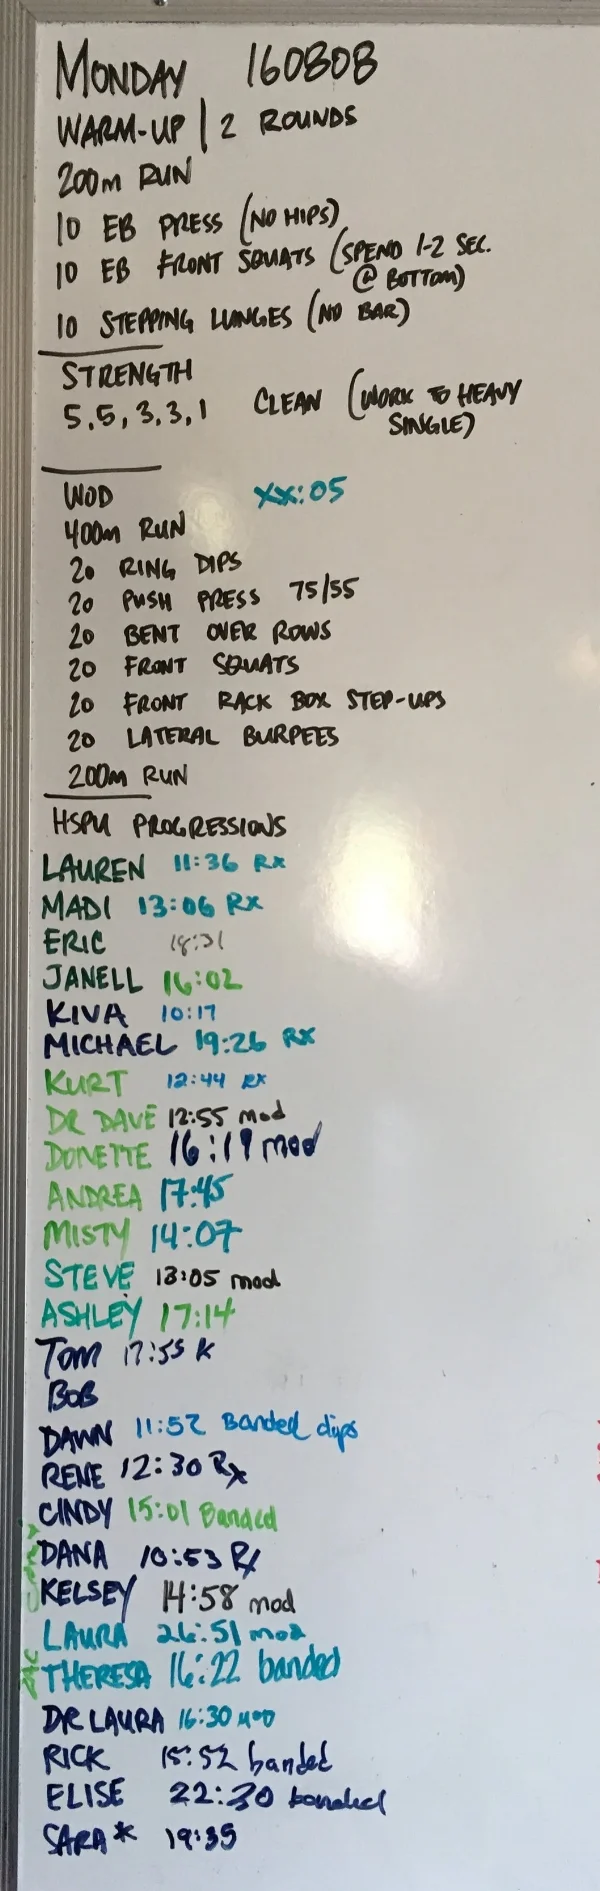 MONDAY 160808
WARM-UP | 2 ROUNDS
200m RUN
10 EB PRESS (NO HIPS)
10 EB FRONT SQUATS (SPEND 1-2 SEC.
@ BOTTOM)
10 STEPPING LUNGES (NO BAR)
STRENGTH
5,5,3,3,1 CLEAN (WORK TO HEAVY
SINGLE)
WOD XX:05
400m RUN
20 RING DIPS
20 PUSH PRESS 75/55
20 BENT OVER ROWS
20 FRONT SQUATS
20 FRONT RACK BOX STEP-UPS
20 LATERAL BURPEES
200m RUN
HSPU PROGRESSIONS
LAUREN 11:36 RX
MADI 13:06 RX
ERIC
JANELL 16:02
KIVA 10:17
MICHAEL 19:26 RX
KURT 12:44 RX
DR DAVE 12:55 mod
DONETTE 16:19 mod
ANDREA 17:45
MISTY 14:07
STEVE 13:05 mod
ASHLEY 17:14
TOM 17:55
BOB
DAWN 11:52 Banded dips
RENE 12:30 Rx
CINDY 15:01 Banded
DANA 10:53 Rx
KELSEY 14:58 mod
LAURA 26:51 mod
THERESA 16:22 banded
DR LAURA 16:30 MOD
RICK 15:52 banded
ELISE 22:30 banded
SARA* 19:35